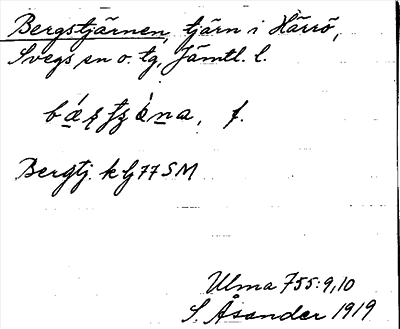 Bergstjärnen, tjärn i Härrö,
Svegs sn o. tg, Jämtl. l.
f.
Bergtj. k lj 77 SM
Ulma 755:9,10
S. Åsander 1919